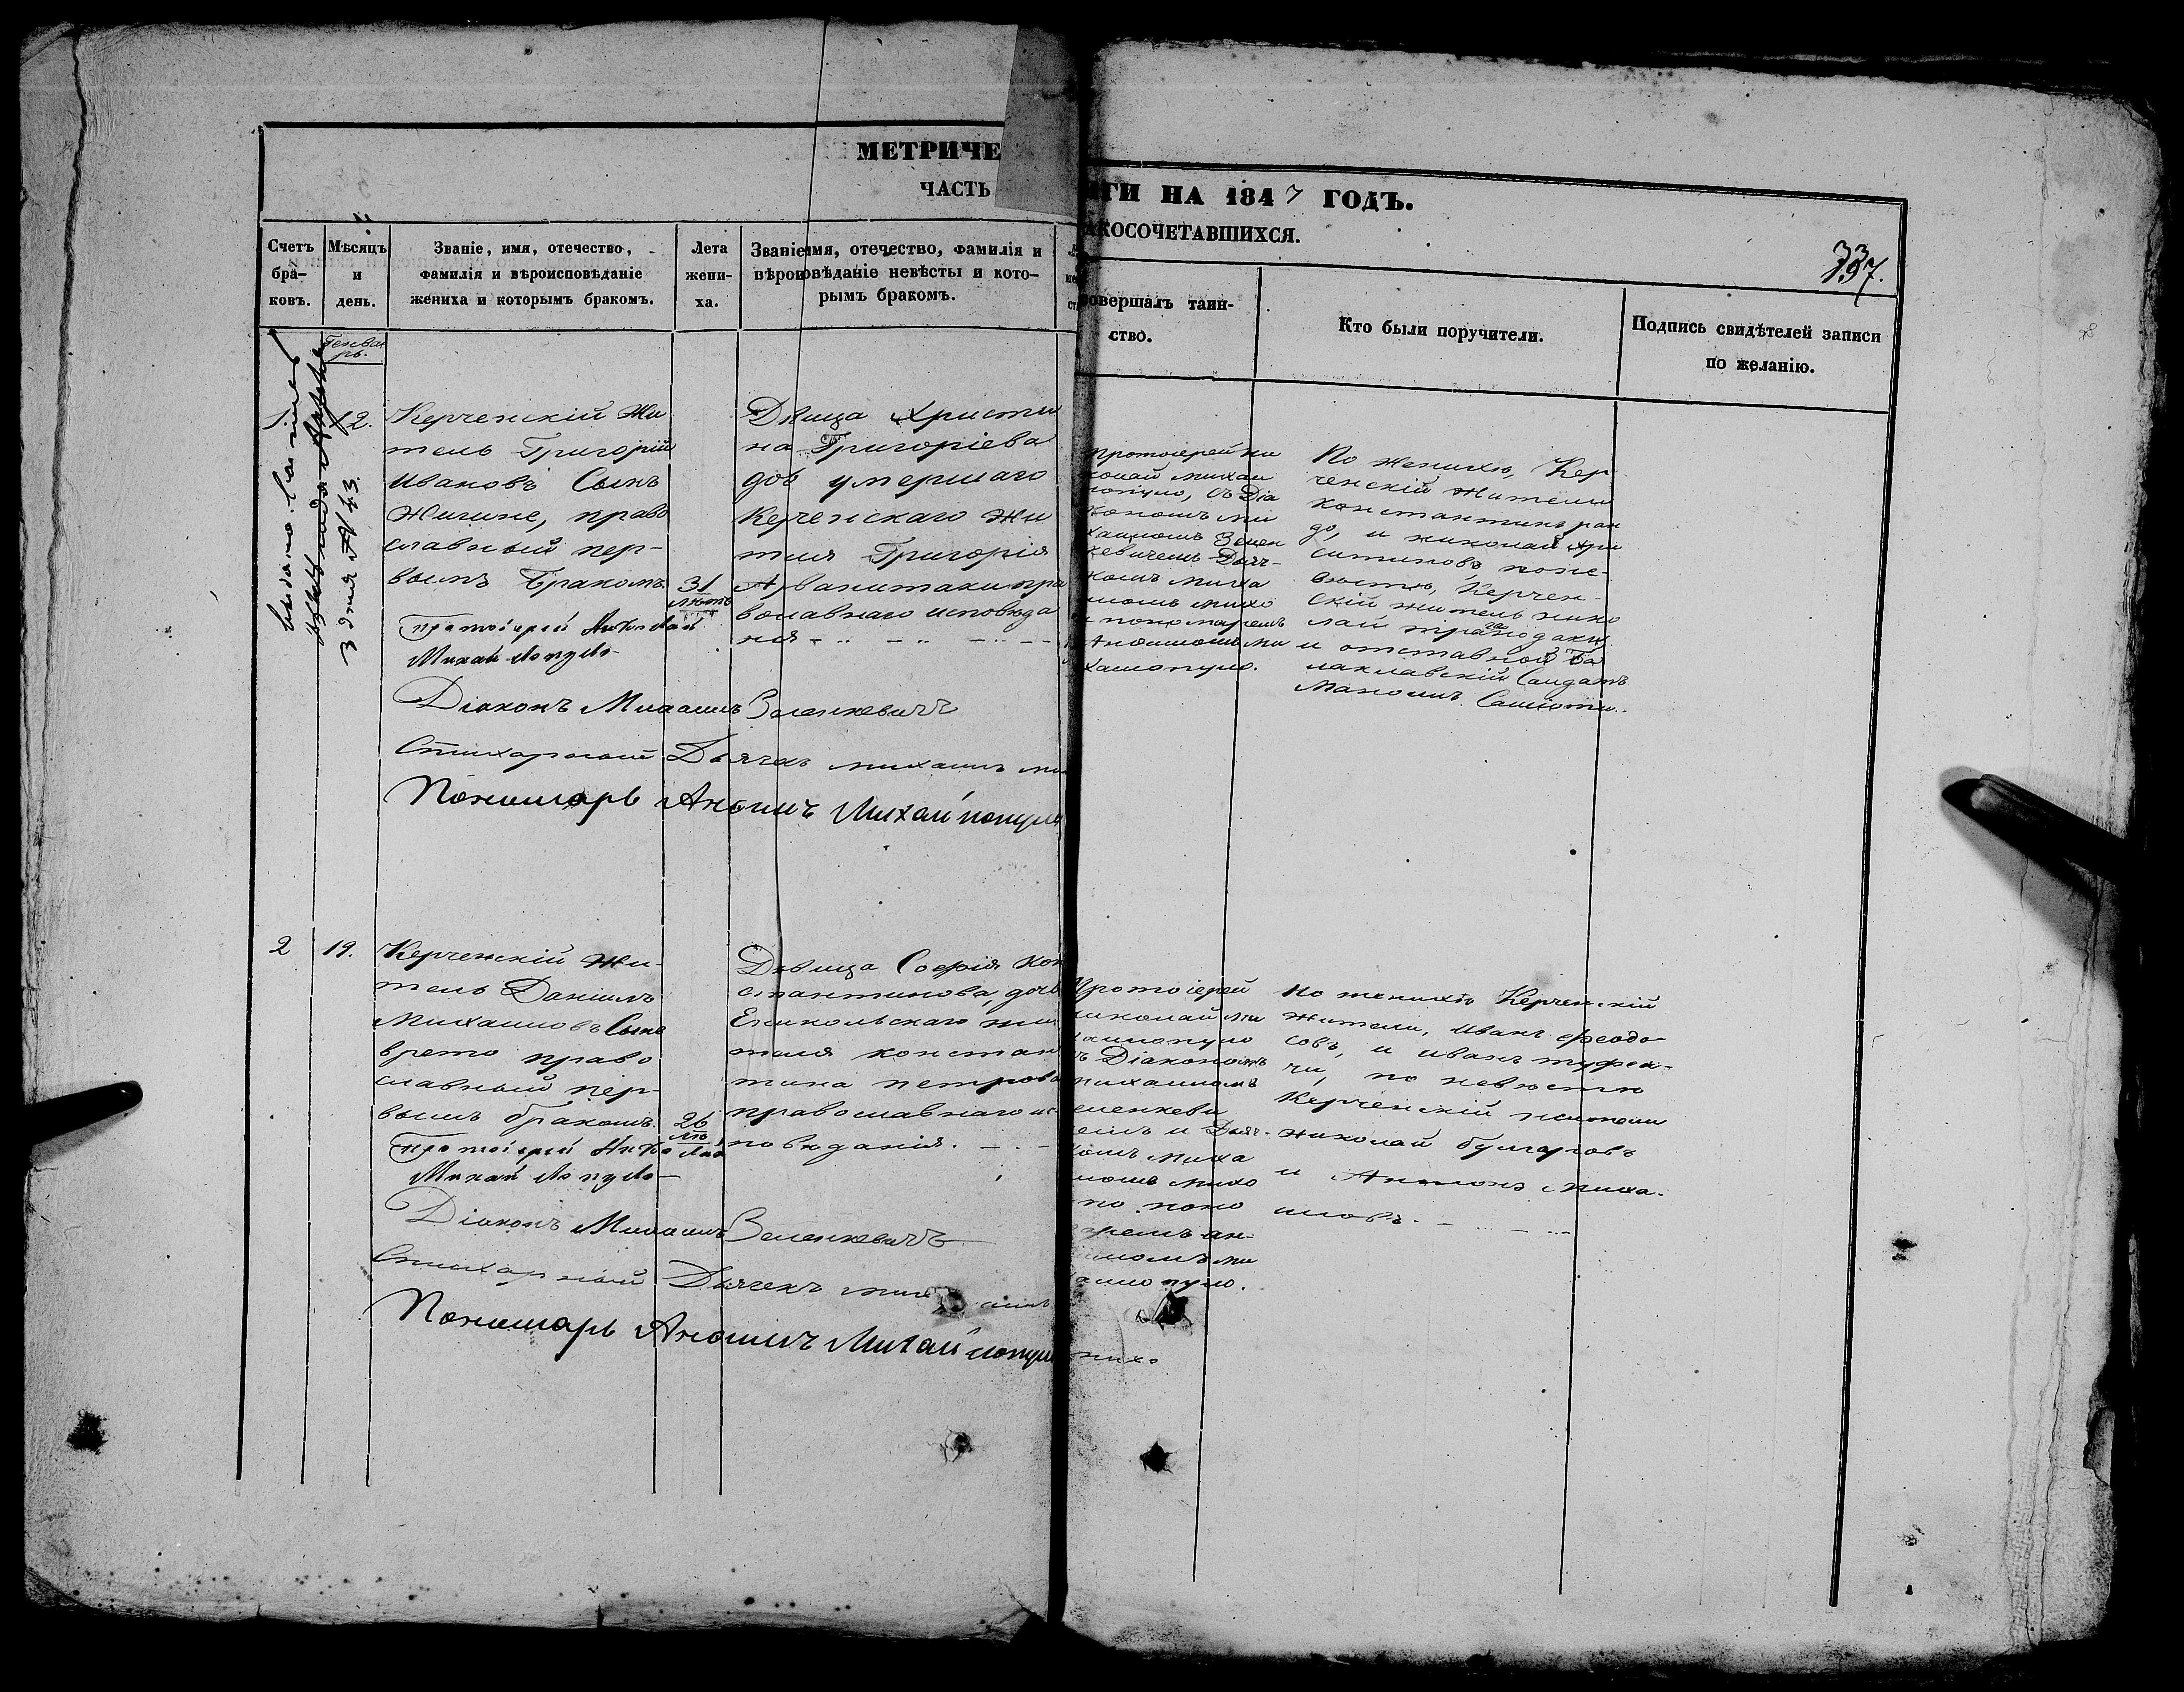 МЕТРИЧЕ
ЧАСТЬ
ГИ НА 1847 ГОДЪ.
КОСОЧЕТАВШИХСЯ.
337.
Счетъ бра- ковъ.
Мѣсяцъ и день.
Званіе, имя, отечество, фамилія и вѣроисповѣданіе жениха и которымъ бракомъ.
Лета жени- ха.
Званіе имя, отечество, фамилія и вѣроиовѣданіе невѣсты и кото- рымъ бракомъ.
совершалъ таин- ство.
Кто были поручители.
Подпись свидѣтелей записи по желанію.
Генвар
рь.
1.
12.
Керченскій Жи
тель Григорій
Ивановъ Сынъ
право
славный пер-
вымъ бракомъ.
31
лѣтъ
Протоіерей Николай
Михайлопуло
Діаконъ Михаилъ Зеленкевичъ
Стихарный Дьячекъ михаилъ
Пономарь Анѳимъ Михайлопуло
Двица Христи
на Григоріева
доч умершаго
Керченскаго Жи
теля Григорія
Арванитаки пра
вославнаго исповѣда
нія
Протоіерей Ни
колай михаи
лопуло, съ Діа
кономъ ми
хаиломъ Зелен
кевичемъ Дьяч-
комъ миха
иломъ михо
и пономаремъ
Анѳимомъ ми
хаилопуло.
По жениху, Кер
ченскій жители
константинъ
до, и николай хри
стиновъ, поне-
вѣстѣ, Керчен-
скій житель нико
лай
и отставной Ба
лаклавскій Солдатъ
Манолъ
2
19.
Керченскій Жи-
тель Даніилъ
Михаиловъ Сынъ
врето право
славный пер-
вымъ бракомъ.
26
лѣ
Протоіерей Николай
Михайлопуло
Діаконъ Михаилъ Зеленкевичъ
Стихарный Дьячекъ
Пономарь Анѳимъ Михайлопуло
Двица Софія Кон
стантинова, дочь
Еникольскаго жи
теля констан
тина петрова
православнаго ис
повѣданія.
Протоіерей
николай ми
хаилопуло
съ Діакономъ
михаиломъ
Зеленкеви
чемъ и Дьяч-
комъ миха
иломъ михо
по поно
маремъ ан-
ѳимомъ ми
хаилопуло.
По жениху Керченскій
жители, иванъ феодо-
совъ, и иванъ туфек-
чи, по невѣстѣ
Керченскій жители
николай булгаровъ
и Антонъ миха-
иловъ.